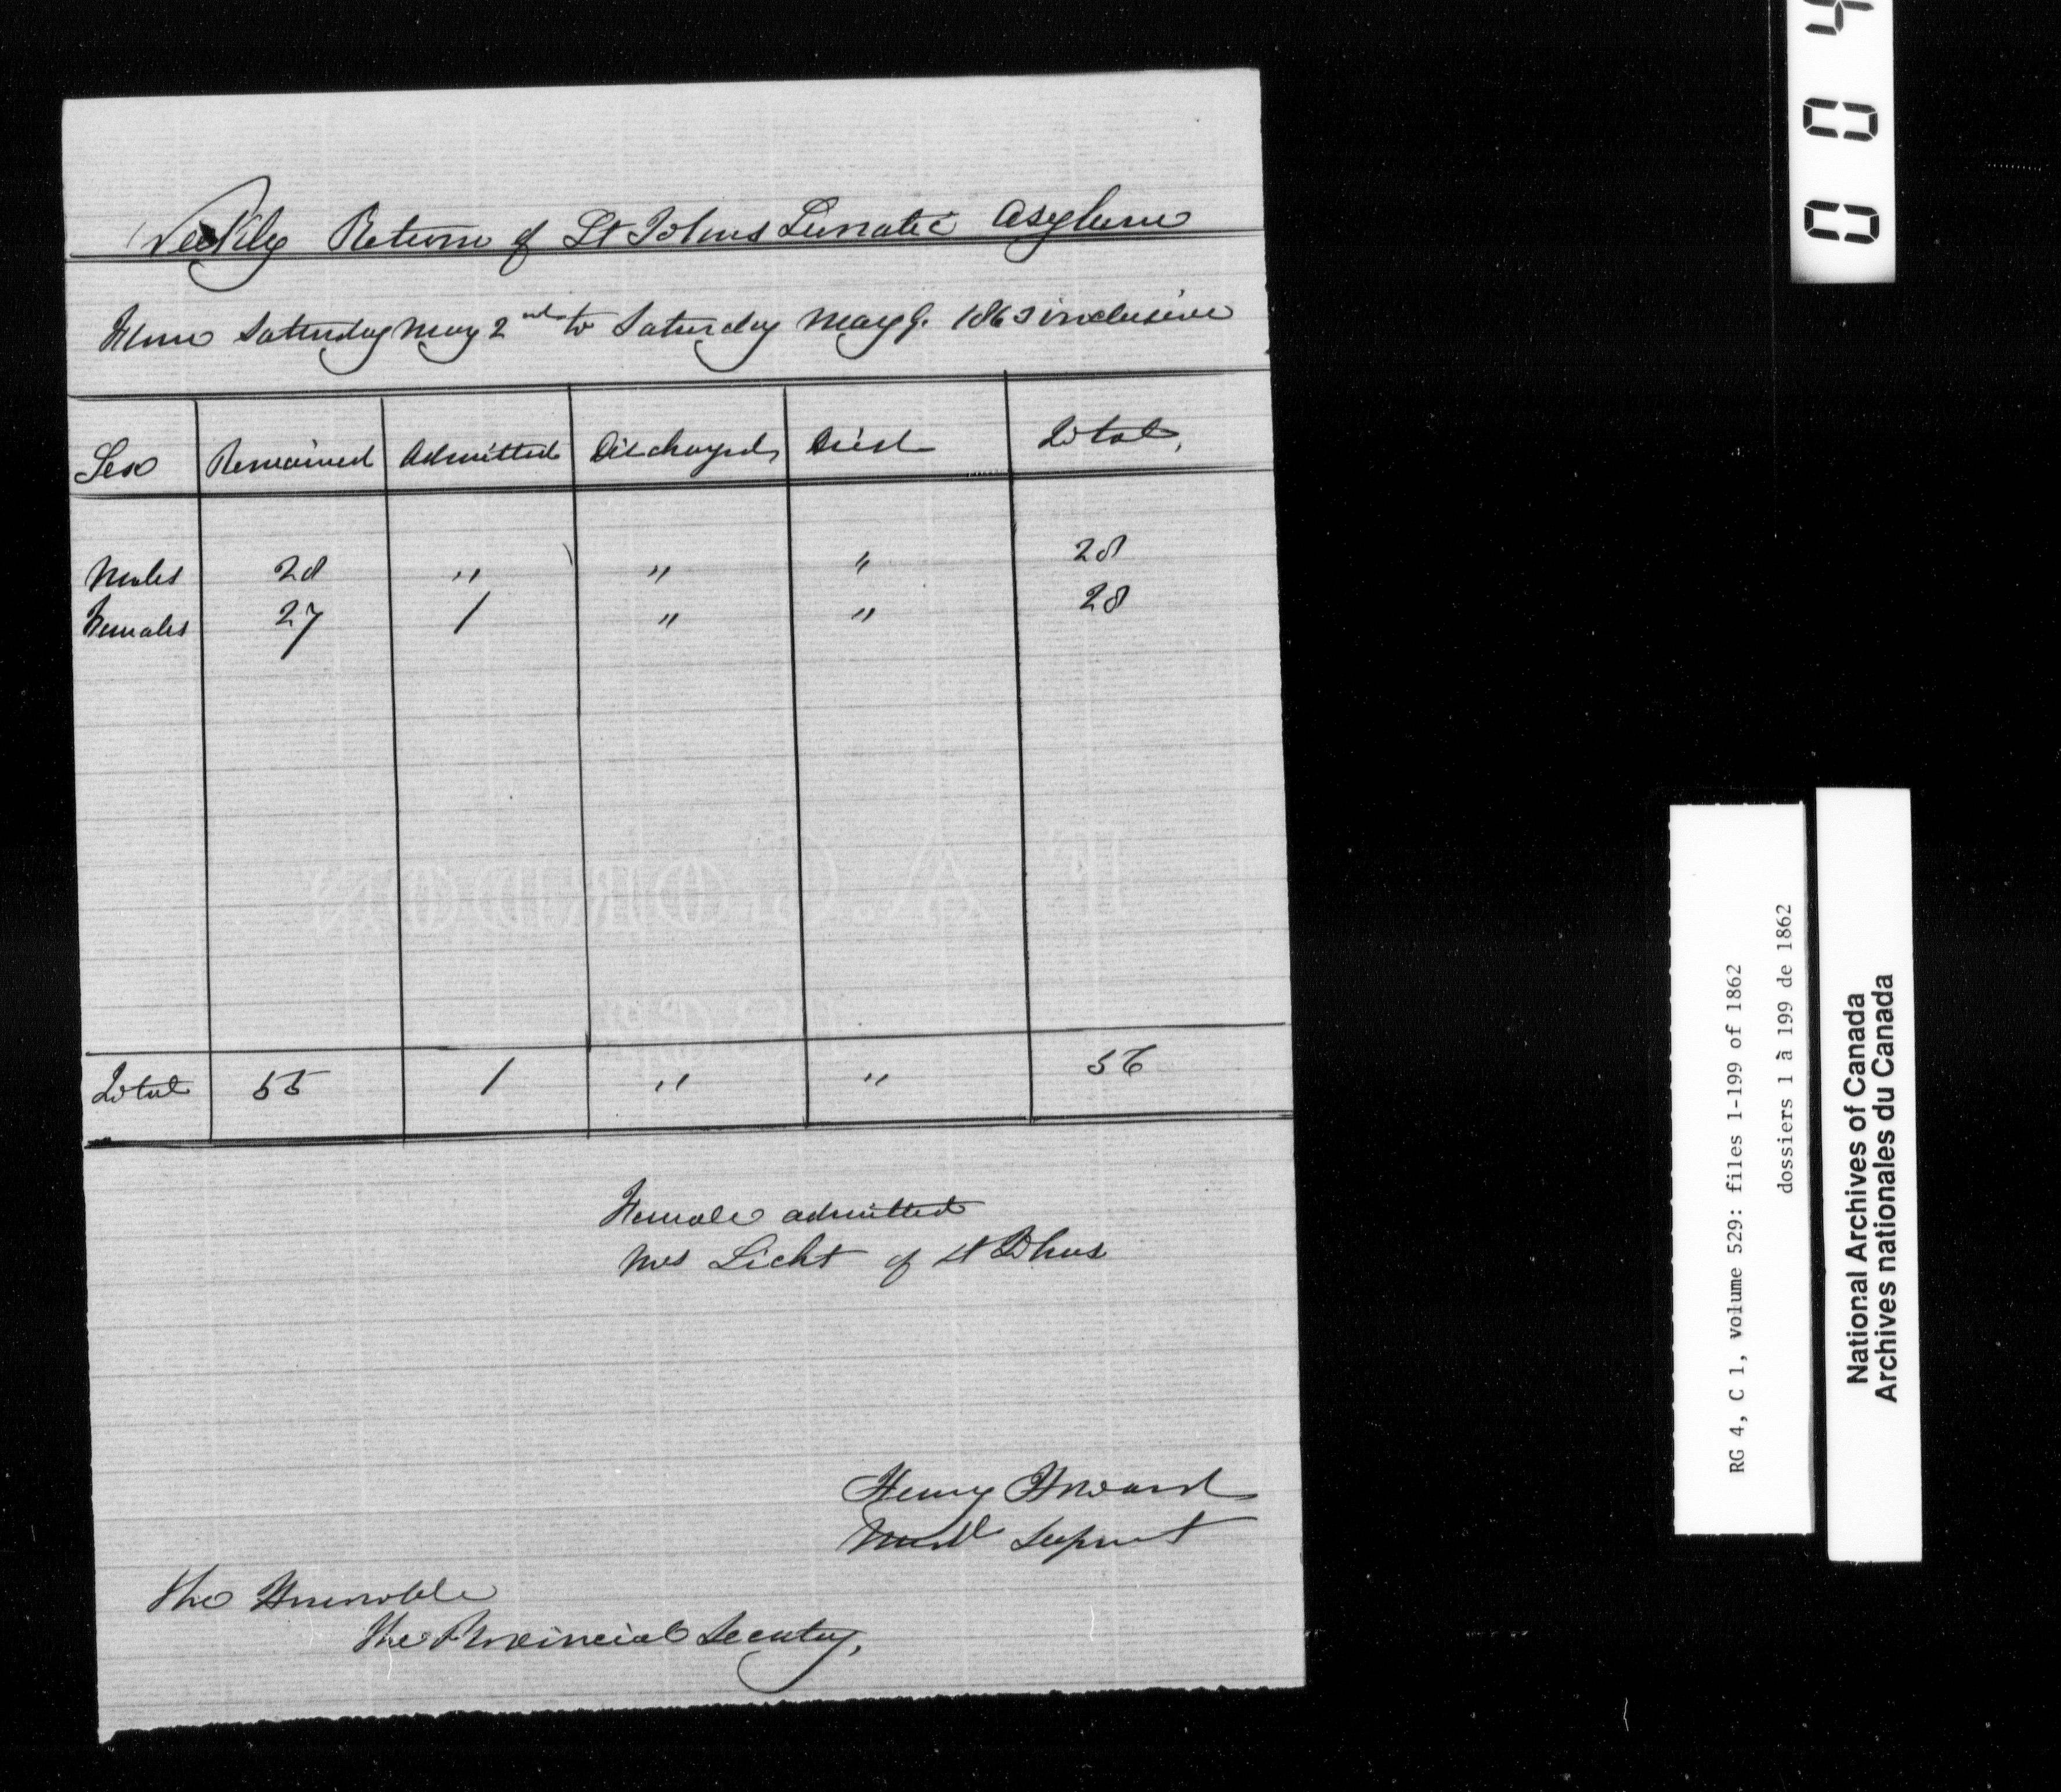 Weekly Return of St Johns Lunatic Asylum
From Saturday May 2nd to Saturday May 9. 1863 inclusive
Sex Remained Admitted Discharged Died Total,
Males 28 " " " 28
Females 27 1 " " 28
T. A. GORDON
1862
Total 55 1 " " 56
Female admitted
Mrs Licht of St Johns
Henry Howard
Medl Supernt
The Honorable
The Provincial Secretary,
0 0 4
RG 4, C 1, volume 529: files 1-199 of 1862
dossiers 1 à 199 de 1862
National Archives of Canada
Archives nationales du Canada